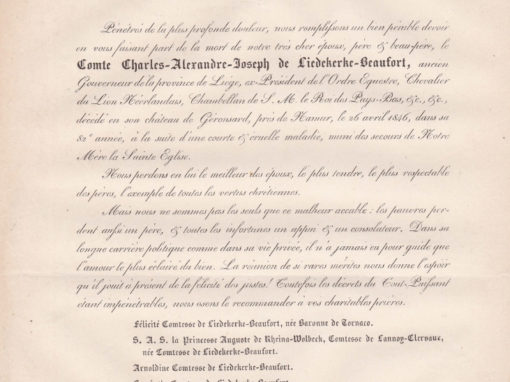 Pénétrés de la plus profonde douleur, nous remplissons un bien pénible devoir
en vous faisant part de la mort de notre très cher époux, père & beau-père, le
Comte Charles-Alexandre-Joseph de Liedekerke-Beaufort, ancien
Gouverneur de la province de Liége, ex-Président de l'Ordre Equestre, Chevalier
du Lion Néerlandais, Chambellan de S. M. le Roi des Pays-Bas, &c, &c,
décédé en son château de Géronsard, près de Namur, le 26 avril 1846, dans sa
82e année, à la suite d'une courte & cruelle maladie, muni des secours de Notre
Mère la Sainte Eglise.
Nous perdons en lui le meilleur des époux, le plus tendre, le plus respectable
des pères, l'exemple de toutes les vertus chrétiennes.
Mais nous ne sommes pas les seuls que ce malheur accable : les pauvres per-
dent aussi un père, & toutes les infortunes un appui & un consolateur. Dans sa
longue carrière politique comme dans sa vie privée, il n'a jamais eu pour guide que
l'amour le plus éclairé du bien. La réunion de si rares mérites nous donne l'espoir
qu'il jouit à présent de la félicité des justes! Toutefois les décrets du Tout-Puissant
étant impénétrables, nous osons le recommander à vos charitables prières.
Félicité Comtesse de Liedekerke-Beaufort, née Baronne de Tornaco.
S. A. S. la Princesse Auguste de Rheina-Wolbeck, Comtesse de Lannoy-Clervaux,
née Comtesse de Liedekerke-Beaufort.
Arnoldine Comtesse de Liedekerke-Beaufort.